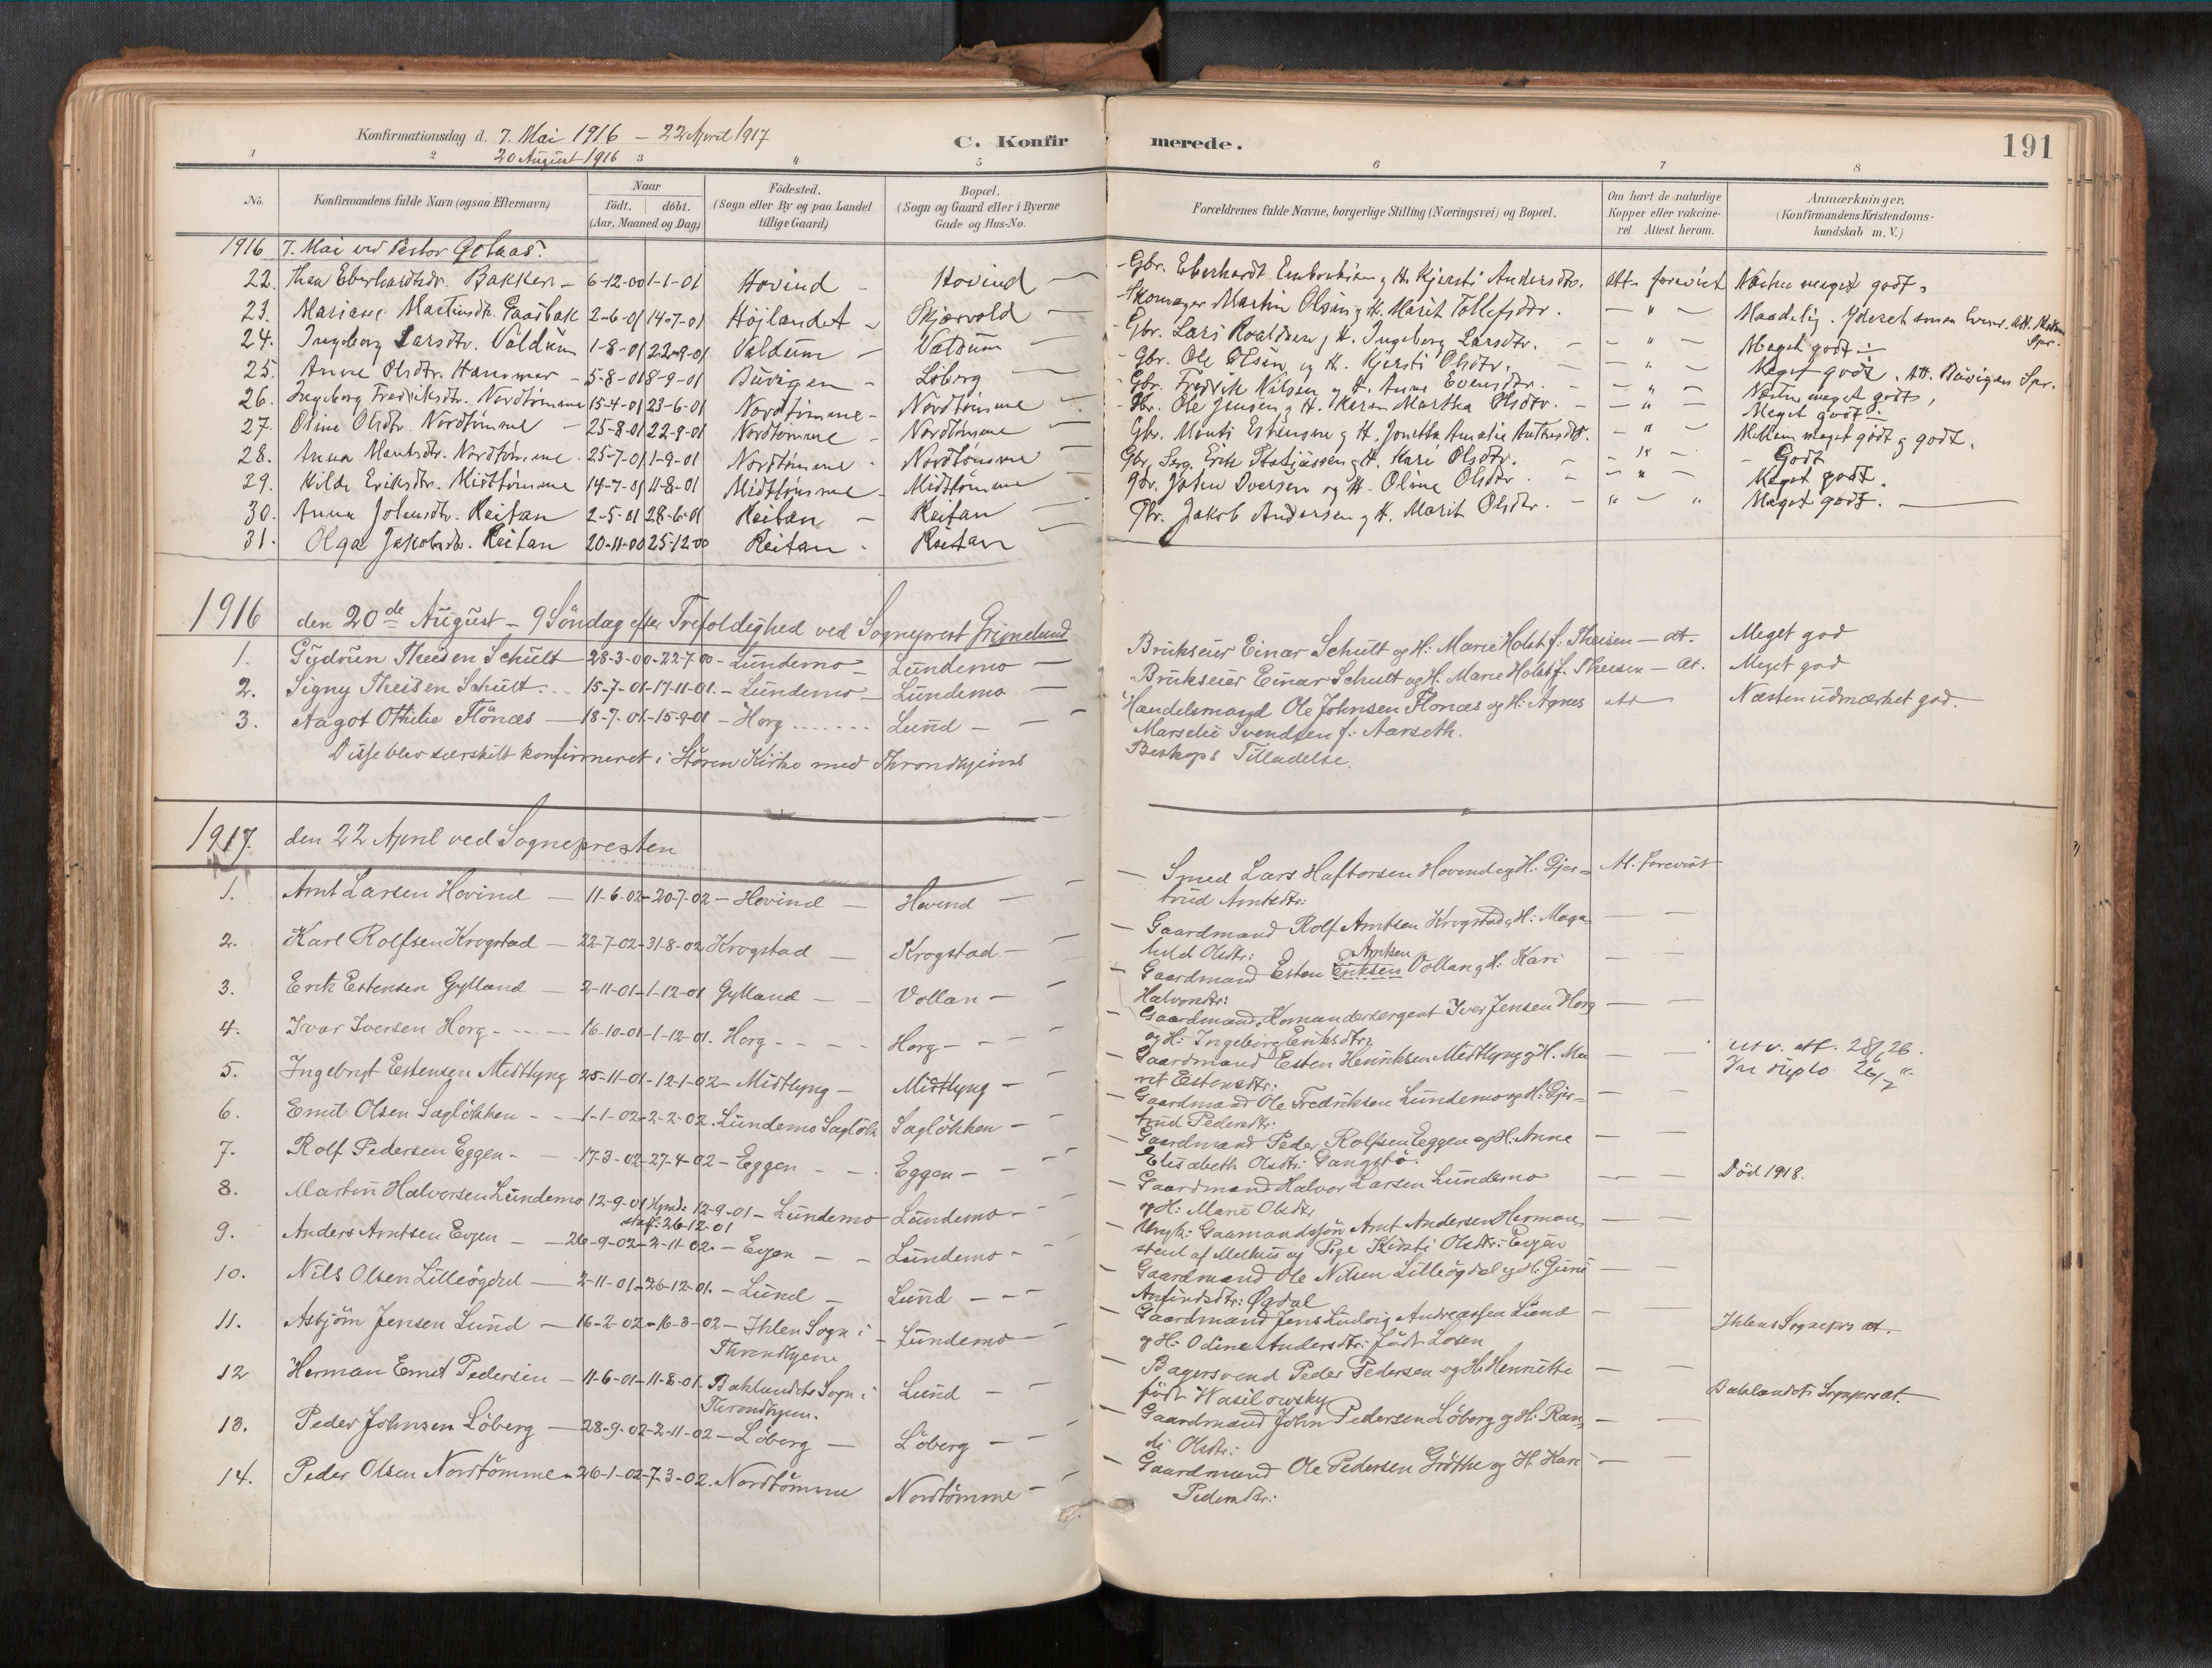 Konfirmationsdag d. 7. Mai 1916 – 22 April 1917
20 August 1916
C. Konfirmerede.
191
1 2 3 4 5 6 7 8
No.
Konfirmandens fulde Navn (ogsaa Efternavn)
Naar
født. døbt.
(Aar, Maaned og Dag)
Fødested.
(Sogn eller By og paa Landet tillige Gaard)
Bopæl.
(Sogn og Gaard eller i Byerne Gade og Hus-No.
Forældrenes fulde Navne, borgerlige Stilling (Næringsvei) og Bopæl.
Om havt de naturlige Kopper eller vakcineret Attest herom.
Anmærkninger.
(Konfirmandens Kristendomskundskab m. V.)
1916 7. Mai ved Pastor
22. Thea Eberhardtsdr. Bakken – 6-12-00 1-1-01 Hovind – Hovind – Gbr. Eberhardt og H. Kjersti Andersdtr. att. forevist Næsten meget godt.
23. Mariane Martinsdtr. Gaasbak 2-6-01 14-7-01 Höjlandet – Skjærvold – Skomager Martin Olsen og H. Marit Tollefsdtr. – " – Maadelig.
24. Ingeborg Larsdtr. Valdum 1-8-01 22-9-01 Valdum – Valdum – Gbr. Lars Roaldsen og H. Ingeborg Larsdtr. – " – Meget godt
25. Anne Olsdtr. Hammer – 5-8-01 8-9-01 Büvigen – Löberg – Gbr. Ole Olsen og H. Kjersti Olsdtr. – " – Meget godt. Att. Büvigen Spr.
26. Ingeborg Fredriksdtr. Nordtømme 15-4-01 23-6-01 Nordtømme – Nordtømme – Gbr. Fredrik Nilsen og H. Anne Evensdtr. – " – Næsten meget godt,
27. Oline Olsdtr. Nordtømme – 25-8-01 22-9-01 Nordtømme – Nordtømme – Gbr. Ole Jensen og H. Karen Martha Olsdtr. – " – Meget godt
28. Anna Montsdtr. Nordtømme 25-7-01 1-9-01 Nordtømme – Nordtømme – Gbr. Monts Estensen og H. Jonetta Amalie – " – Mellem meget godt og godt.
29. Hilda Eriksdtr. Midttømme 14-7-01 11-8-01 Midttømme – Midttømme – Gbr. Serg. Erik og H. Kari Olsdtr. – " – Godt
30. Anna Johnsdtr. Reitan 2-5-01 28-6-01 Reitan – Reitan – Gbr. John Iversen og H. Oline Olsdtr. – " – Meget godt.
31. Olga Jakobsdtr. Reitan 20-11-00 25-12-00 Reitan – Reitan Gbr. Jakob Andersen og H. Marit Olsdtr. – " – " Meget godt. –
1916 den 20de August – 9 Söndag efter Trefoldighed ved Sogneprest Grimelund
1. Gudrun Theisen Schult – 28-3-00 – 22-7-00 – Lundemo – Lundemo – Brukseier Einar Schult og H: Marie Holst f: Theisen – at. Meget god
2. Signy Theisen Schult – 15-7-01 – 17-11-01. – Lundemo – Lundemo – Brukseier Einar Schult og H. Marie Holst f. Theisen – at. Meget god
3. Aagot Othilie Flönæs – 18-7-01 – 15-9-01 – Horg ....... Lund – Handelsmand Ole Johnsen Flonæs og H: Agnes at – Næsten udmærket god.
Marselie Svendsen f: Aarseth.
Disse blev særskilt konfirmeret i Stören Kirke med Throndhjems Biskops Tilladelse.
1917. den 22 April ved Sognepresten
1. Arnt Larsen Hovind – 11-6-02 – 20-7-02 – Hovind – Hovind – Smed Lars Haftorsen Hovind og H: Gjer- At. forevist
trud Arntsdtr:
2. Karl Rolfsen Krogstad – 22-7-02 – 31-8-02 Krogstad – Krogstad – Gaardmand Rolf Arntsen Krogstad og H: Maga-
hild Olsdtr:
3. Erik Estensen Gylland – 2-11-01 – 1-12-01 Gylland – Vollan – Gaardmand Esten Eriksen Arntsen Vollan og H: Kari
Halvorsdtr:
4. Ivar Iversen Horg – 16-10-01 – 1-12-01. Horg – Horg – Gaardmand, Komandersergent Iver Jensen Horg
og H: Ingeborg Eriksdtr:
5. Ingebrigt Estensen Midtlyng 25-11-01 – 12-1-02 – Midtlyng – Midtlyng – Gaardmand Esten Henriksen Midtlyng og H. Ma- utv. att. 28/1 26.
rit Estensdtr: In duplo 26/7 "
6. Emil Olsen Saglökken – 1-1-02 – 2-2-02. Lundemo Saglökk Saglökken – Gaardmand Ole Fredriksen Lundemo og H: Gjer-
trud Pedersdtr:
7. Rolf Pedersen Eggen – 17-3-02 – 27-4-02 – Eggen – Eggen – Gaardmand Peder Rolfsen Eggen og H: Anne
Elisabeth Olsdtr: Gangstö.
8. Martin Halvorsen Lundemo 12-9-01 Hjmd: 12-9-01 – Lundemo – Lundemo – Gaardmand Halvor Larsen Lundemo – Död 1918.
staf: 26-12-01 og H: Marie Olsdtr
9. Anders Arntsen Evjen – 26-9-02 – 2-11-02. – Evjen – Lundemo – Ungk: Gaarmandssjön Arnt Andersen Herman-
stad af Melhus og Pige Kirsti Olsdtr: Evjen
10. Nils Olsen Lilleögdal – 2-11-01 – 26-12-01. – Lund – Lund – Gaardmand Ole Nilsen Lilleögdal og H: Guri
Anfindsdtr: Øgdal
11. Asbjörn Jensen Lund – 16-2-02 – 16-3-02 – Ihlen Sogn i Throndhjem – Lundemo – Gaardmand Jens Ludvig Andreassen Lund – Ihlens Sognepr at.
og H: Odine Andersdtr: födt Losen
12 Herman Ernst Pedersen – 11-6-01 – 11-8-01. Baklandets Sogn i Throndhjem. Lund – Bagersvend Peder Pedersen og H: Henriette – Baklandets Sognepr at.
födt Wasilowsky
13. Peder Johnsen Löberg – 28-9-02 – 2-11-02 – Löberg – Löberg – Gaardmand John Pedersen Löberg og H: Ran-
di Olsdtr:
14. Peder Olsen Nordtömme – 26-1-02 – 7-3-02. Nordtömme Nordtömme – Gaardmand Ole Pedersen Gröthe og H. Kari –
Pedersdtr: